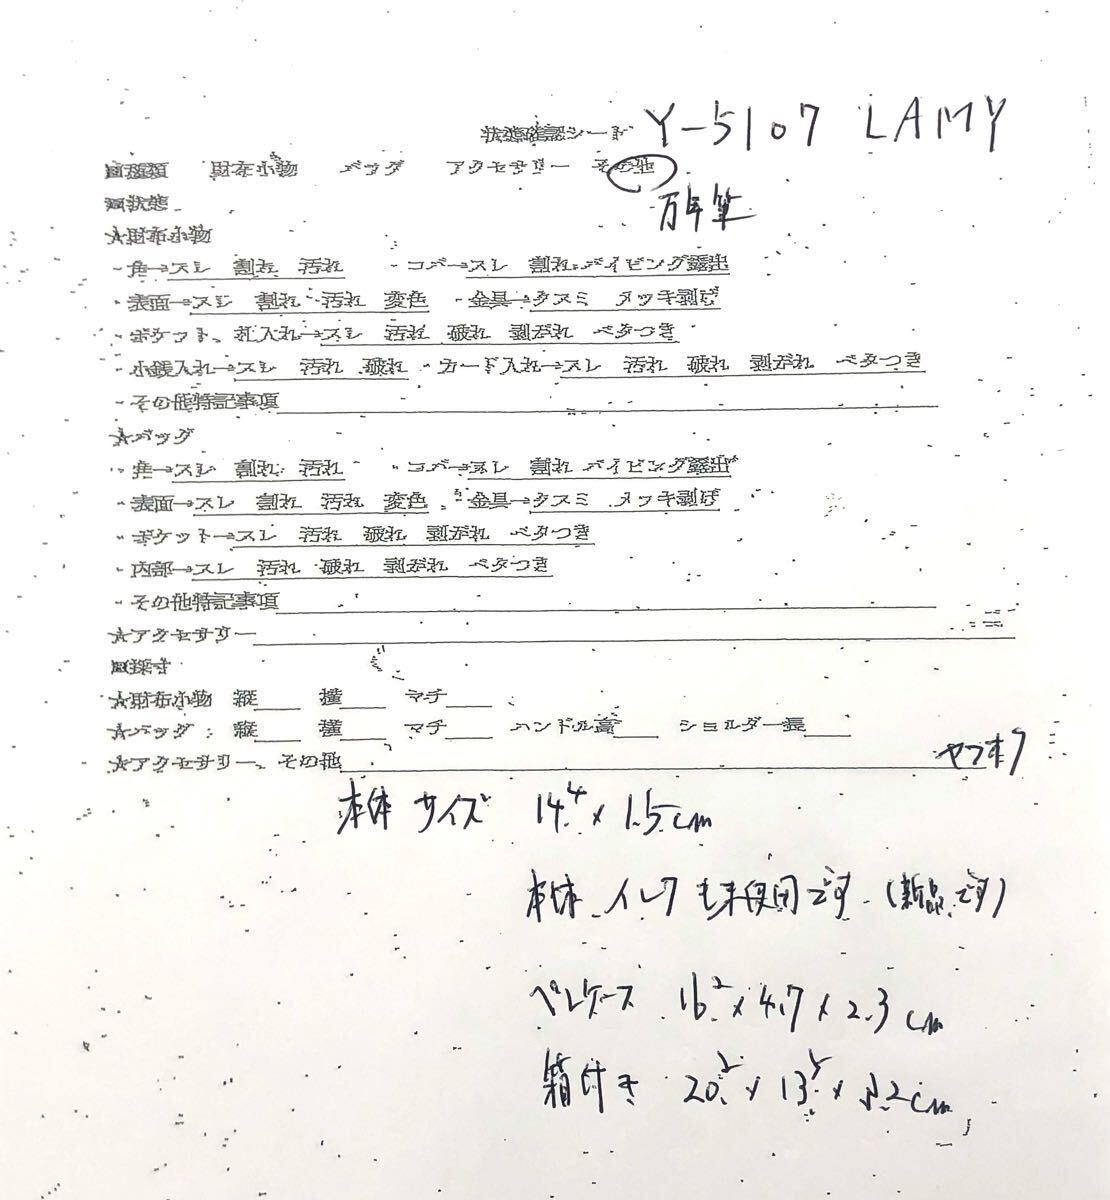 状態確認シート Y-5107 LAMY
■種類 財布小物 バッグ アクセサリー その他
万年筆
■状態
★財布小物
・角→スレ 割れ 汚れ ・コバ→スレ 割れ パイピング露出
・表面→スレ 割れ 汚れ 変色 ・金具→クスミ メッキ剥げ
・ポケット、札入れ→スレ 汚れ 破れ 剥がれ ベタつき
・小銭入れ→スレ 汚れ 破れ ・カード入れ→スレ 汚れ 破れ 剥がれ ベタつき
・その他特記事項
★バッグ
・角→スレ 割れ 汚れ ・コバ→スレ 割れ パイピング露出
・表面→スレ 割れ 汚れ 変色 ・金具→クスミ メッキ剥げ
・ポケット→スレ 汚れ 破れ 剥がれ ベタつき
・内部→スレ 汚れ 破れ 剥がれ ベタつき
・その他特記事項
★アクセサリー
■採寸
★財布小物 縦 横 マチ
★バッグ: 縦 横 マチ ハンドル高 ショルダー長
★アクセサリー、その他
ヤフオク
本体 サイズ 14.4 x 1.5cm
本体 インクも未使用です (新品です)
ペンケース 16.2 x 4.7 x 2.3 cm
箱付き 20.2 x 13.5 x 2cm